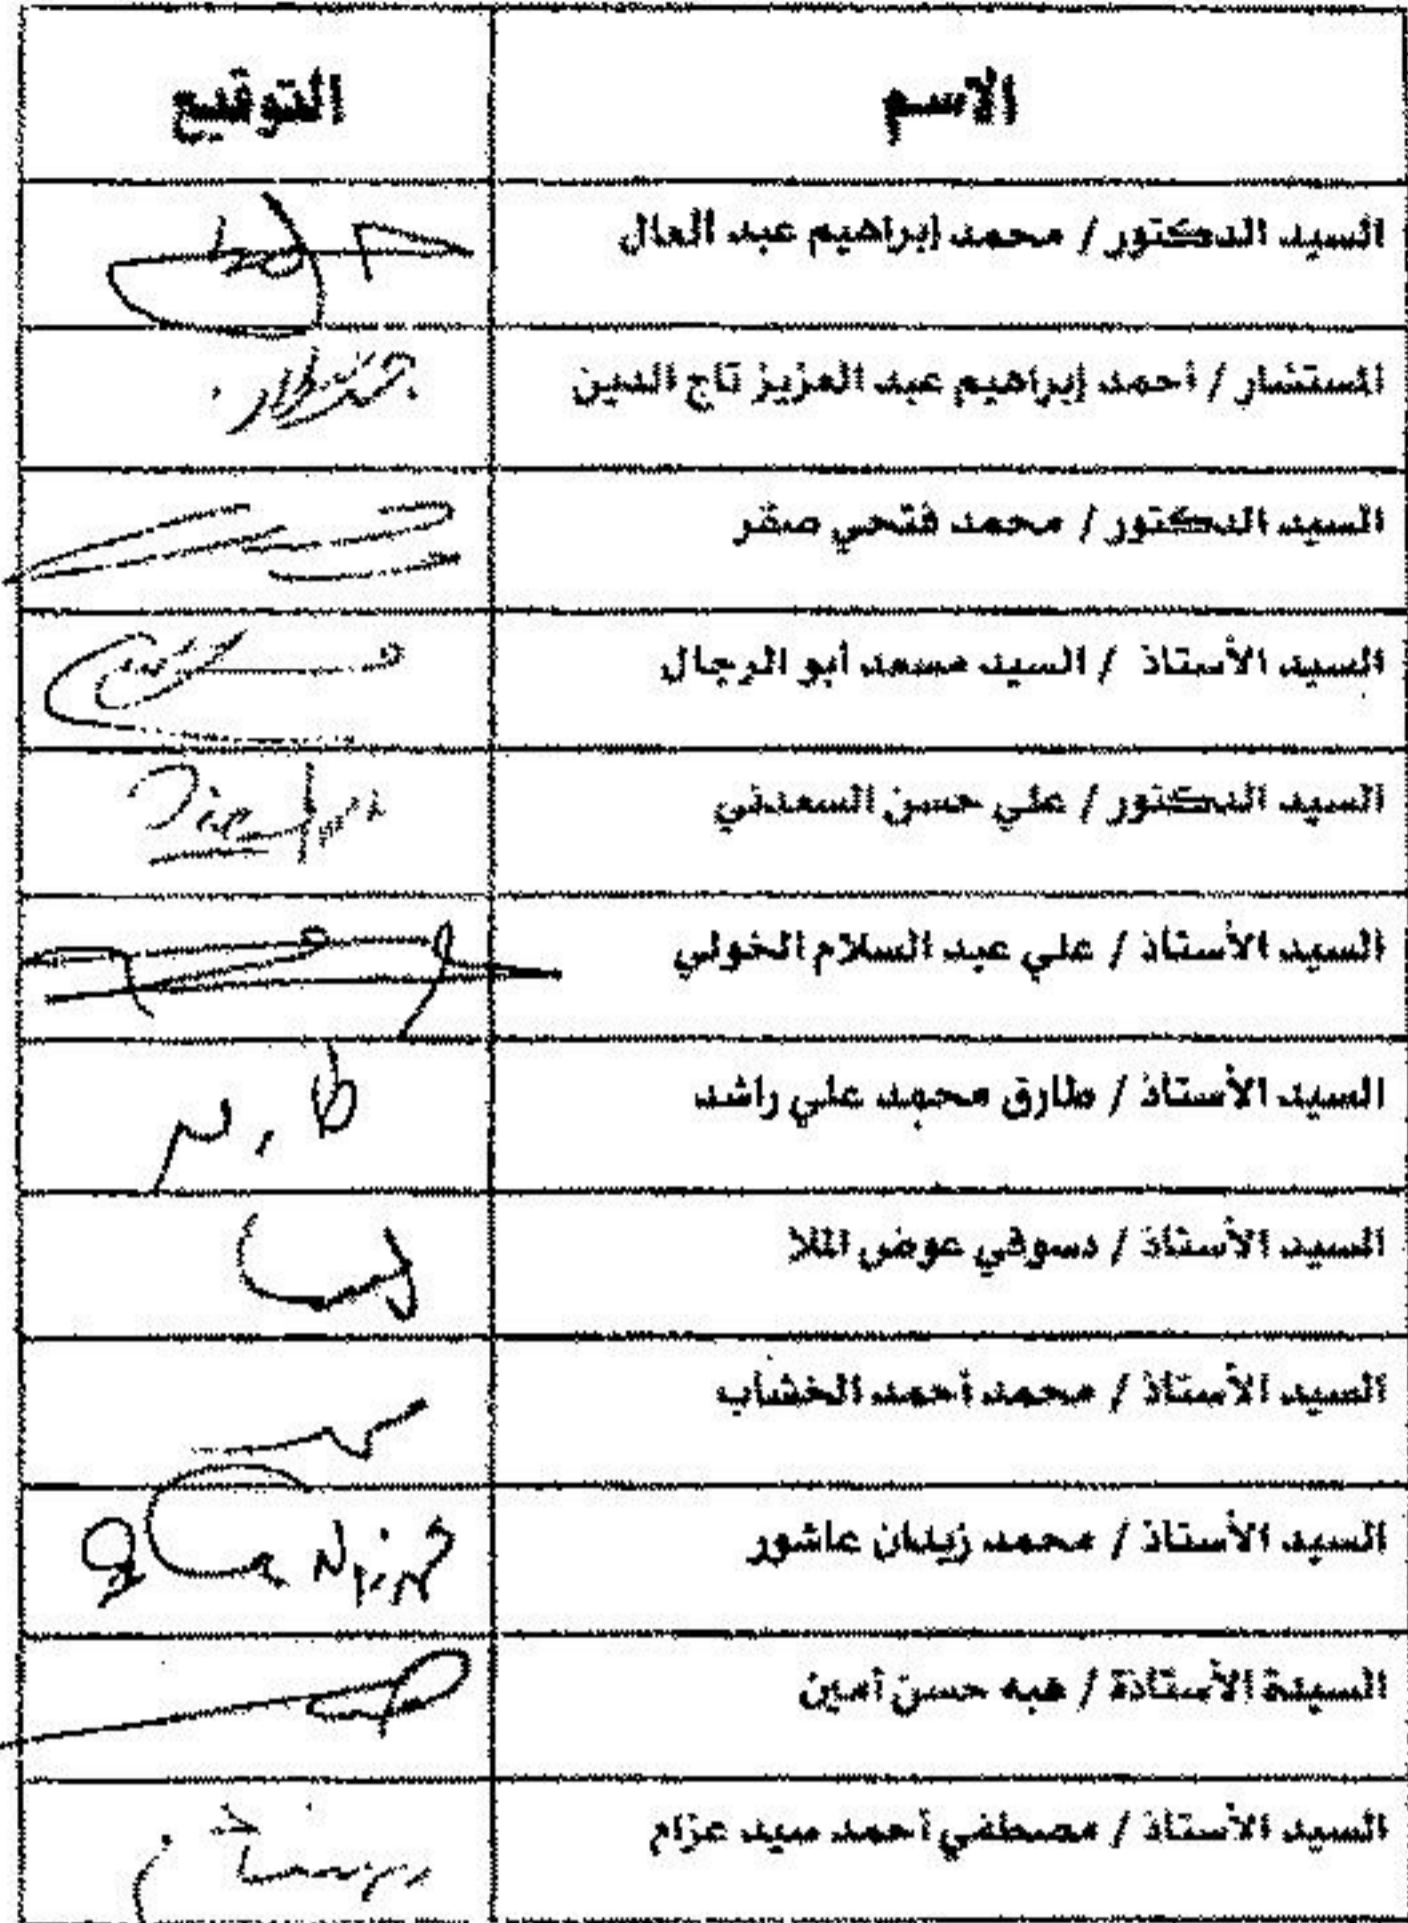 الاسم التوقيع
السيد الدكتور / محمد إبراهيم عبد العال
المستشار / أحمد إبراهيم عبد العزيز تاج الدين
السيد الدكتور / محمد فتحي صقر
السيد الأستاذ / السيد مسعد أبو الرجال
السيد الدكتور / علي حسن السعدني
السيد الأستاذ / علي عبد السلام الخولي
السيد الأستاذ / طارق محمد علي راشد
السيد الأستاذ / دسوقي عوض الملا
السيد الأستاذ / محمد أحمد الخشاب
السيد الأستاذ / محمد زيدان عاشور
السيدة الأستاذة / هبه حسن أمين
السيد الأستاذ / مصطفي أحمد سيد عزام